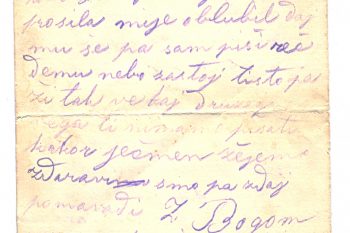 prosila mije oblubil daj
mu še pa sam piši več
demu nebo zastoj tisto pa
zi tak vekaj druzeg
ega ti nimam pisati
kokor ječmen žejemo
zdaravi smo pa zdaj
pomavadi Z. Bogom